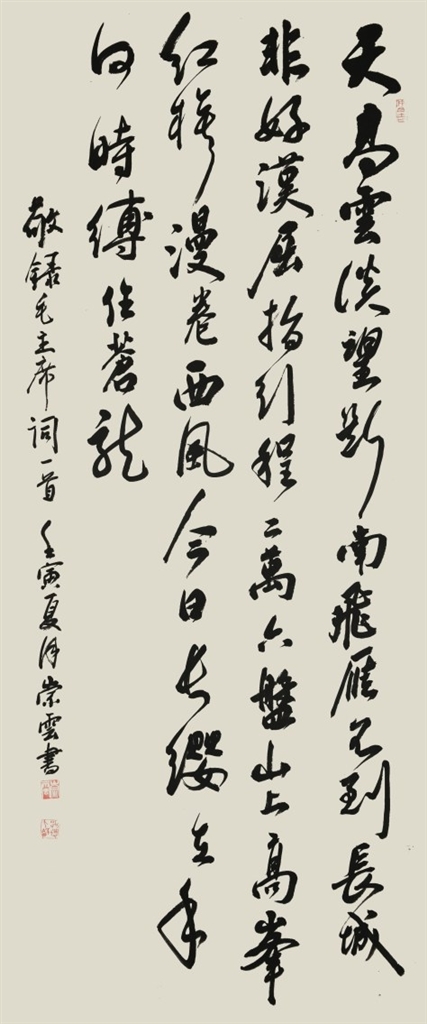 天高雲淡望断南飛雁不到長城
非好漢屈指行程二萬六盤山上高峯
紅旗漫卷西風今日长纓在手
何時縛住蒼龍
敬錄毛主席詞一首 壬寅夏月崇雲書